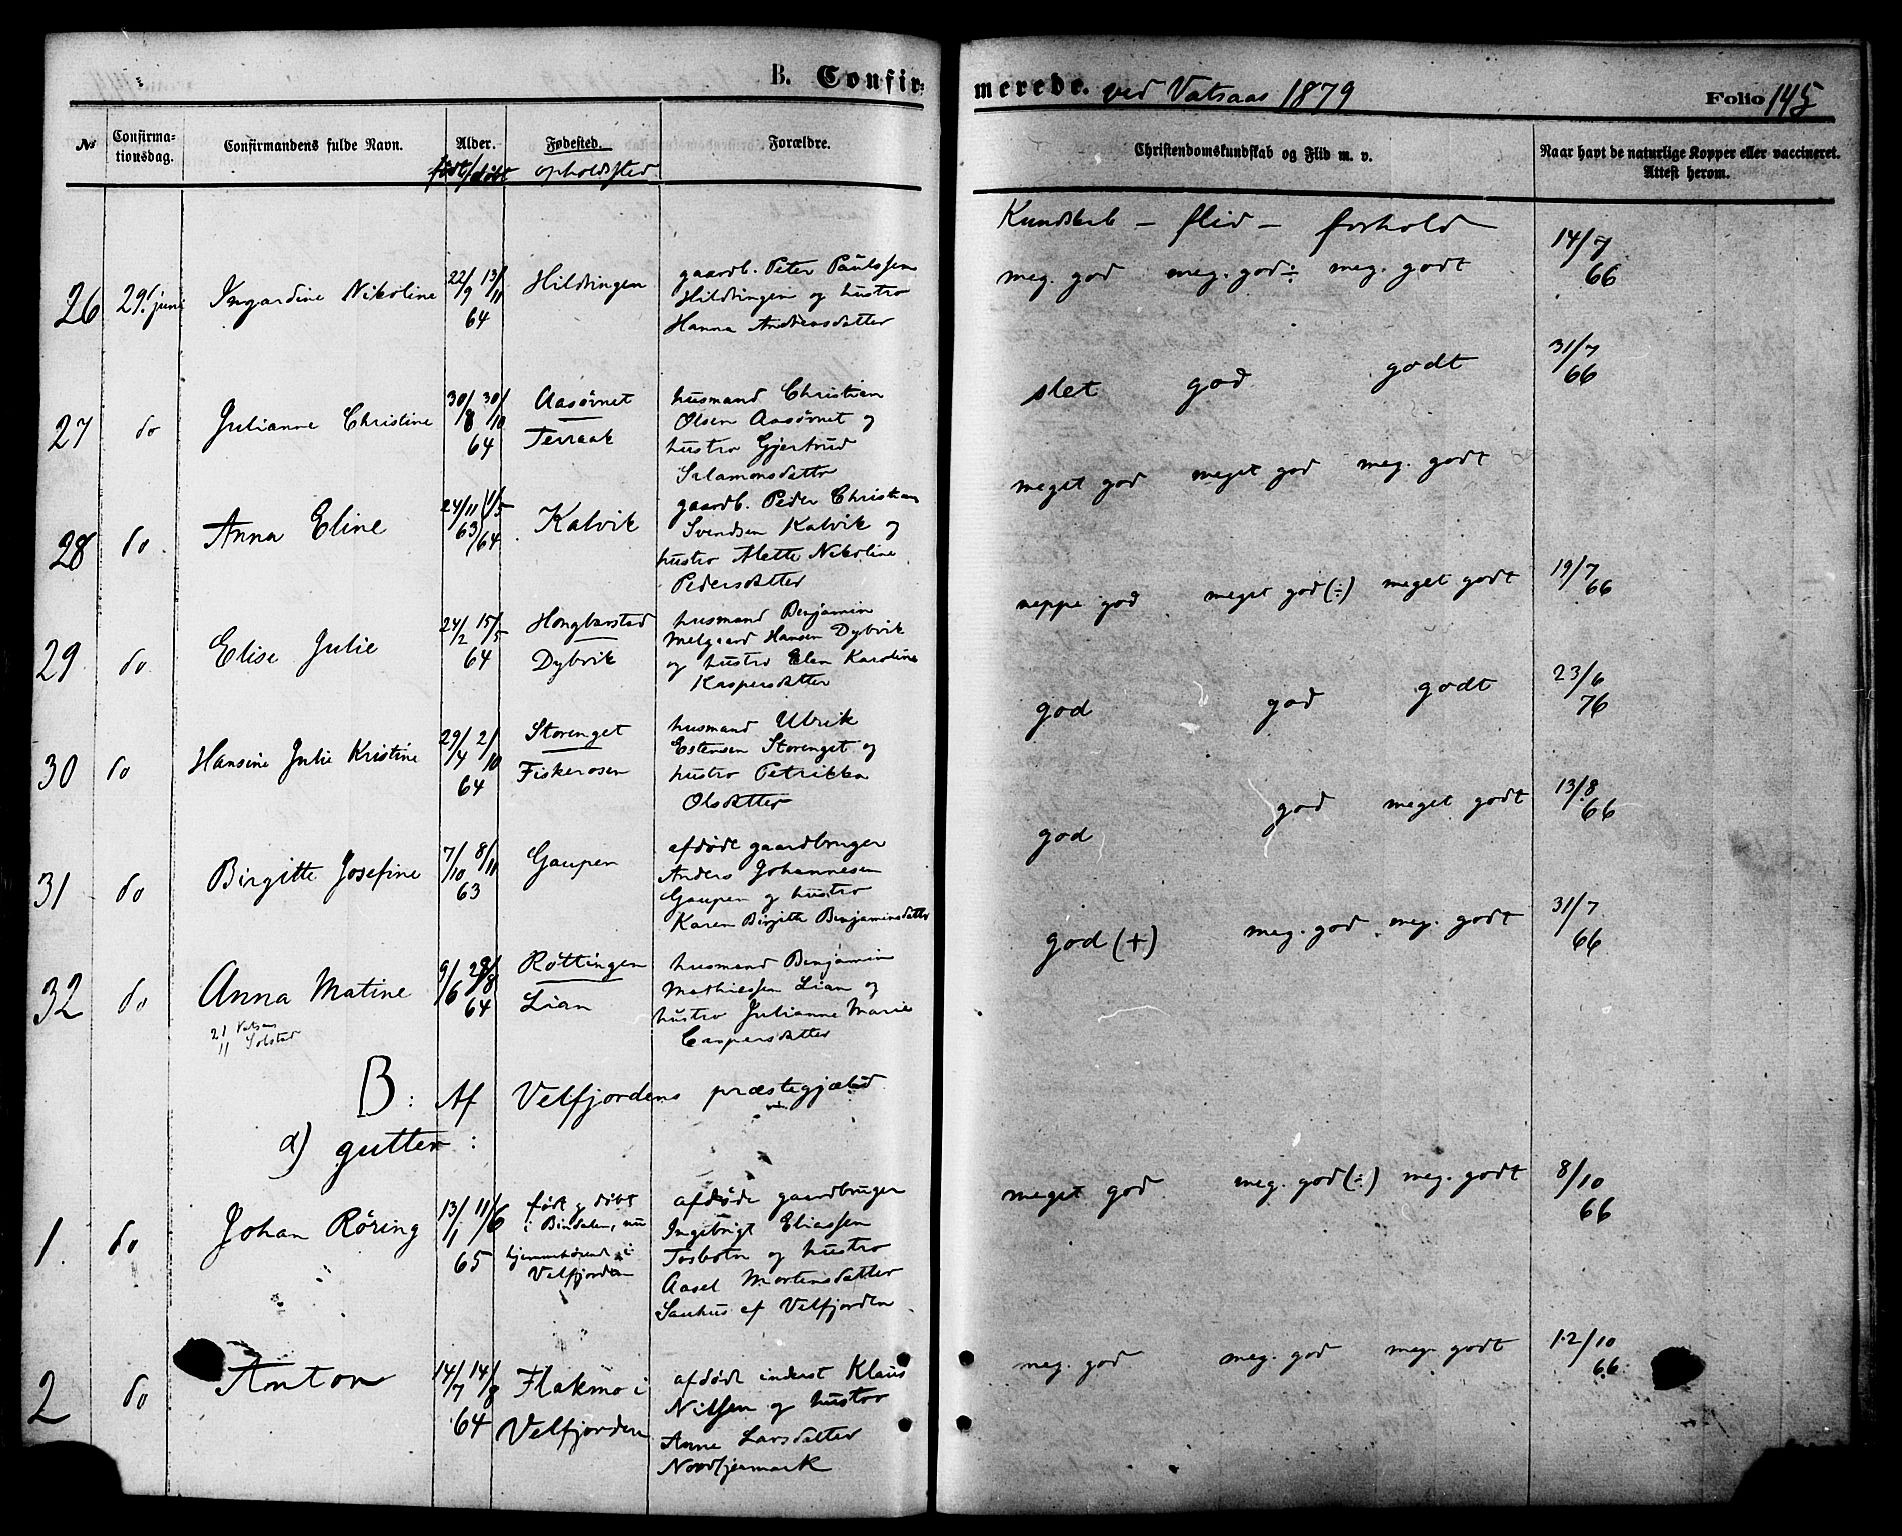 B. Confir- merede. ved Vatsaas 1879 Folio 145
No Confirma-tionsdag. Confirmandens fulde Navn. Alder. Fødested. Forældre. Christendomskundskab og Flid m. v. Naar havt de naturlige Kopper eller vaccineret. Attest herom.
født/døbt opholdssted
Kundskab – flid – forhold
26 29. juni Ingardine Nikoline 22/9 13/11 64 Hildringen
gaardb. Peter Paulssen
Hildringen og hustro
Hanna Andreasdatter
meg. god meg. god÷ meg. godt 14/7 66
27 do Julianne Christine 30/8 30/10 64 Aasørnet
Terraak
husmand Christian
Olsen Aasørnet og
hustro Gjertrud
Salamonsdatter
slet god godt 31/7 66
28 do. Anna Eline 24/11 63 1/5 64 Kalvik
gaardb. Peder Christian
Svendsen Kalvik og
hustro Mette Nikoline
Pedersdatter
meget god meget god meg. godt
29 do. Elise Julie 24/2 15/5 64 Hongbarstad
Dybvik
husmand Benjamin
Melgaard Hansen Dybvik
og hustro Elen Karoline
Kaspersdatter
neppe god meget god (÷) meget godt 19/7 66
30 do Hansine Julie Kristine 29/4 2/10 64 Storenget
Fiskerosen
husmand Ulrik
Estensen Storenget og
hustro Petrikka
Olsdatter
god god godt 23/6 76
31 do Birgitte Josefine 7/10 8/11 63 Gaupen
afdøde gaardbruger
Anders Johannesen
Gaupen og hustro
Karen Birgitte Benjaminsdatter
god god meget godt 13/8 66
32 do Anna Matine 9/6 28/8 64 Røttingen
Lian
husmand Benjamin
Mathiessen Lian og
hustro Julianne Marie
Caspersdatter
god (+) meg. god meg. godt 31/7 66
21 Vatsaas
11 Solstad
B: Af Velfjordens præstegjæld
a) gutter:
1. do Johan Røring 13/1 11/6 65 født og døbt
i Bindalen, nu
hjemmehørende i
Velfjorden
afdøde gaardbruger
Ingebrigt Eliassen
Tosbotn og hustro
Aasel Mortensdatter
Sauhus af Velfjorden
meget god meg. god (÷) meg. godt 8/10 66
2 do Anton 14/7 14/8 64 Flakmo i
Velfjorden
afdøde inderst Klaus
Nilssen og hustro
Anne Larsdatter
Nordfjermark
meg. god meg. god meg. godt 12/10 66